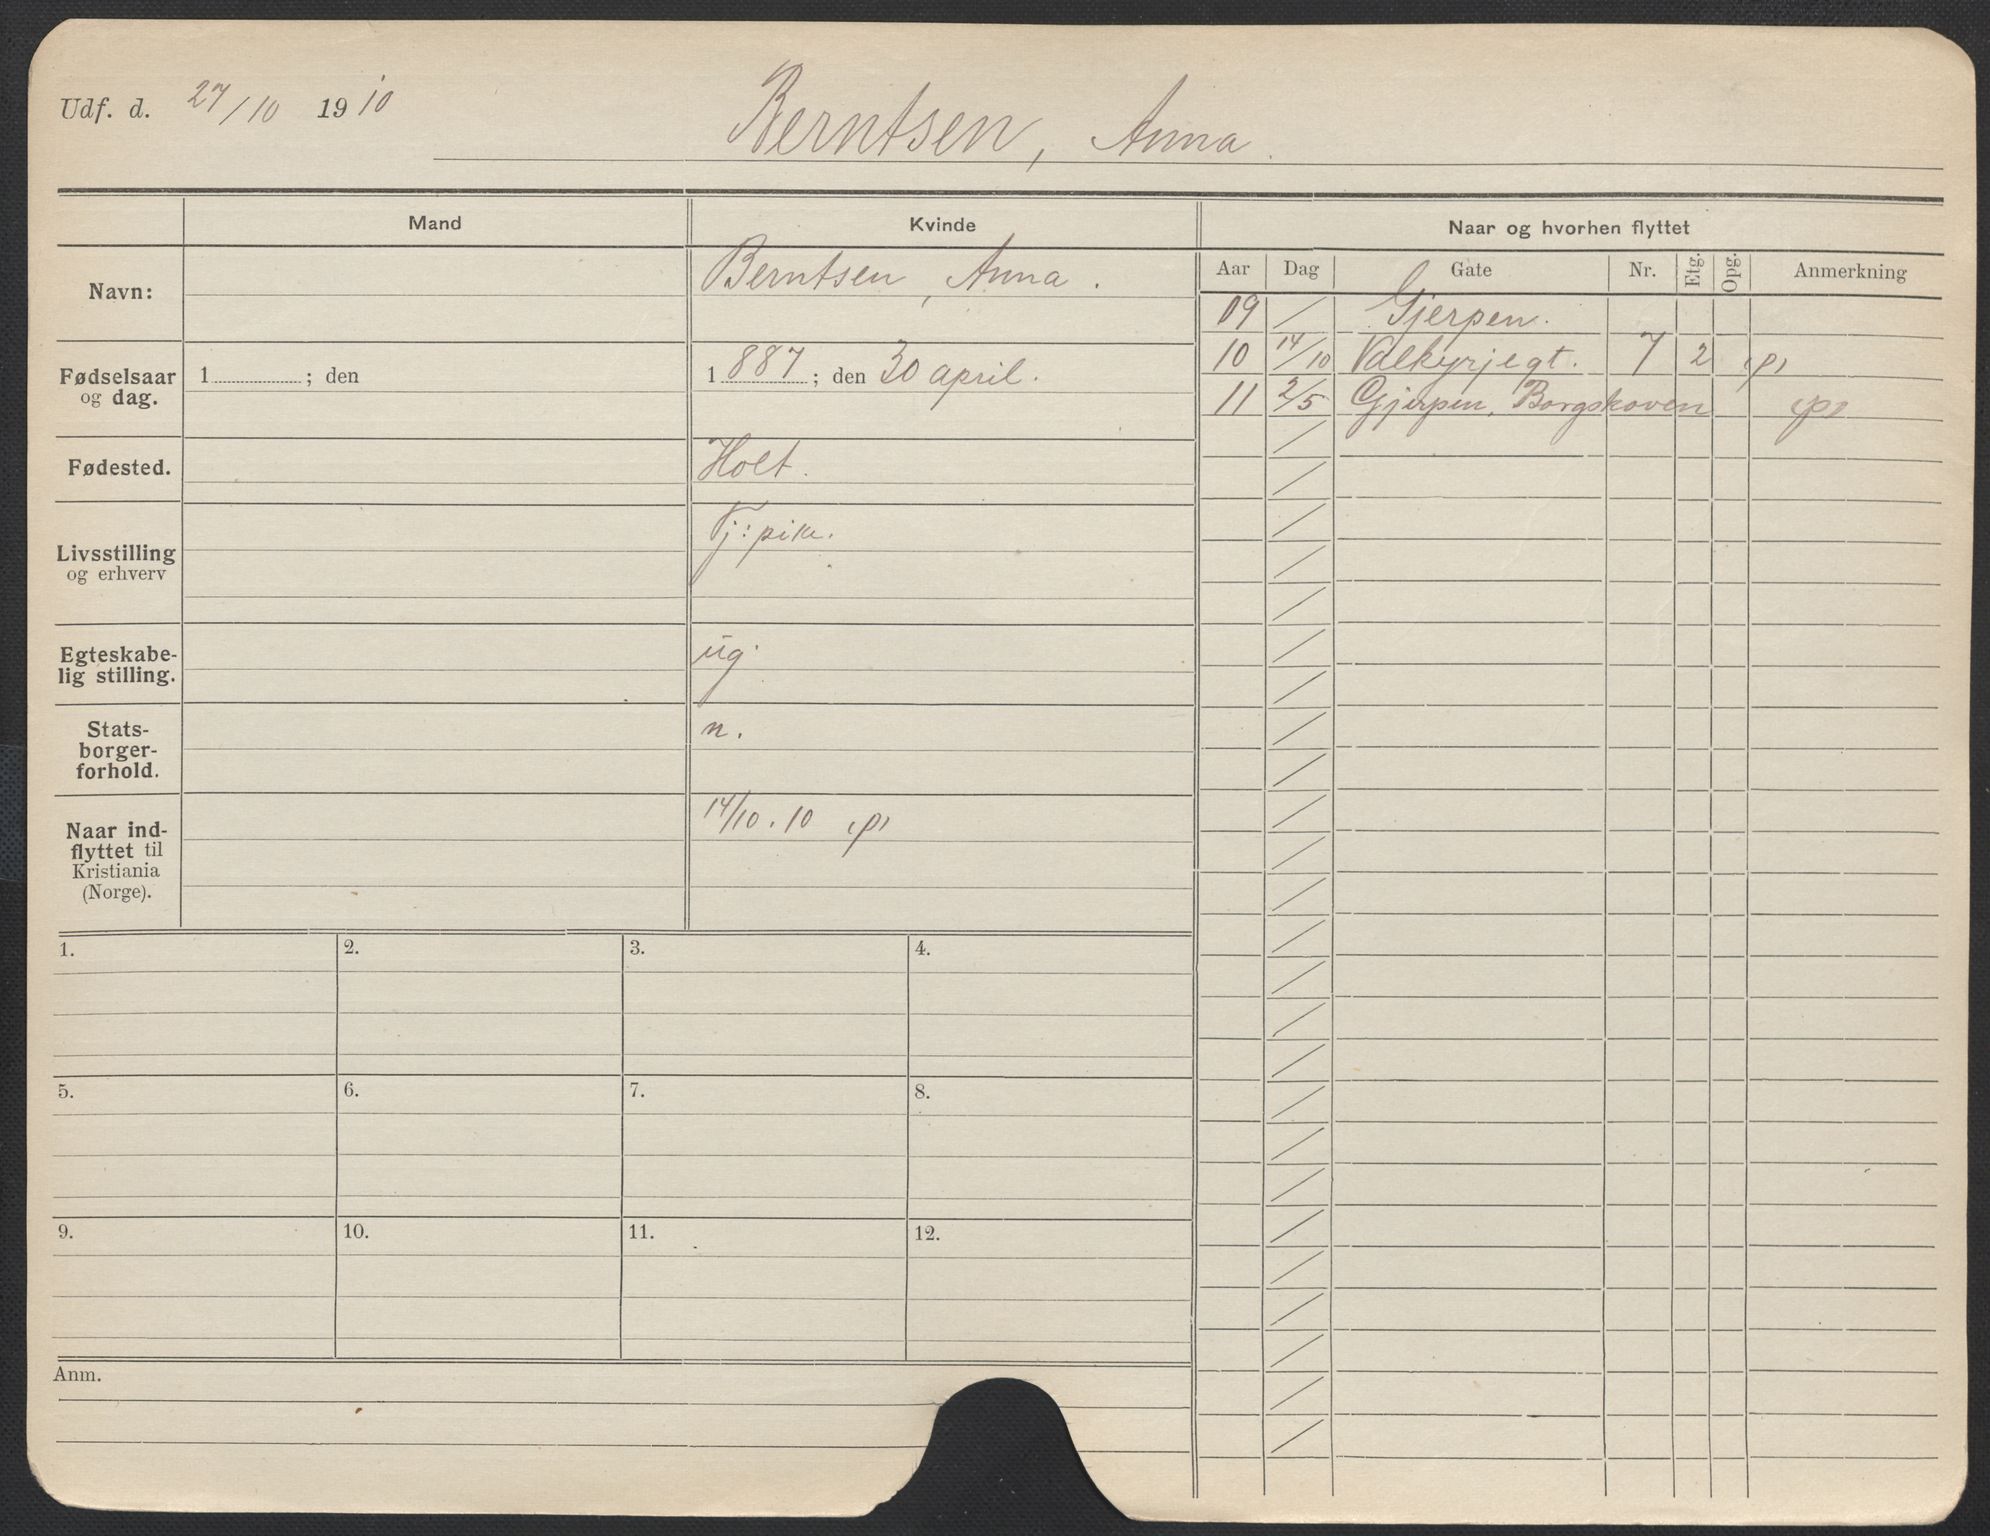 Udf. d. 27/10 1910
Berntsen, Anna.
Mand
Kvinde
Naar og hvorhen flyttet
Aar Dag Gate Nr. Etg. Opg. Anmerkning
Navn:
Berntsen, Anna.
Fødselsaar
og dag.
1 ; den
1887; den 30 april.
Fødested.
Holt.
Livsstilling
og erhverv
Tj: pike.
Egteskabe-
lig stilling.
ug.
Stats-
borger-
forhold.
n.
Naar ind-
flyttet til
Kristiania
(Norge).
14/10. 10 (p)
09 / Gjerpen.
10 14/10 Valkyrjegt. 7 2 (p)
11 2/5 Gjerpen, Borgskoven (p)
1. 2. 3. 4.
5. 6. 7. 8.
9. 10. 11. 12.
Anm.